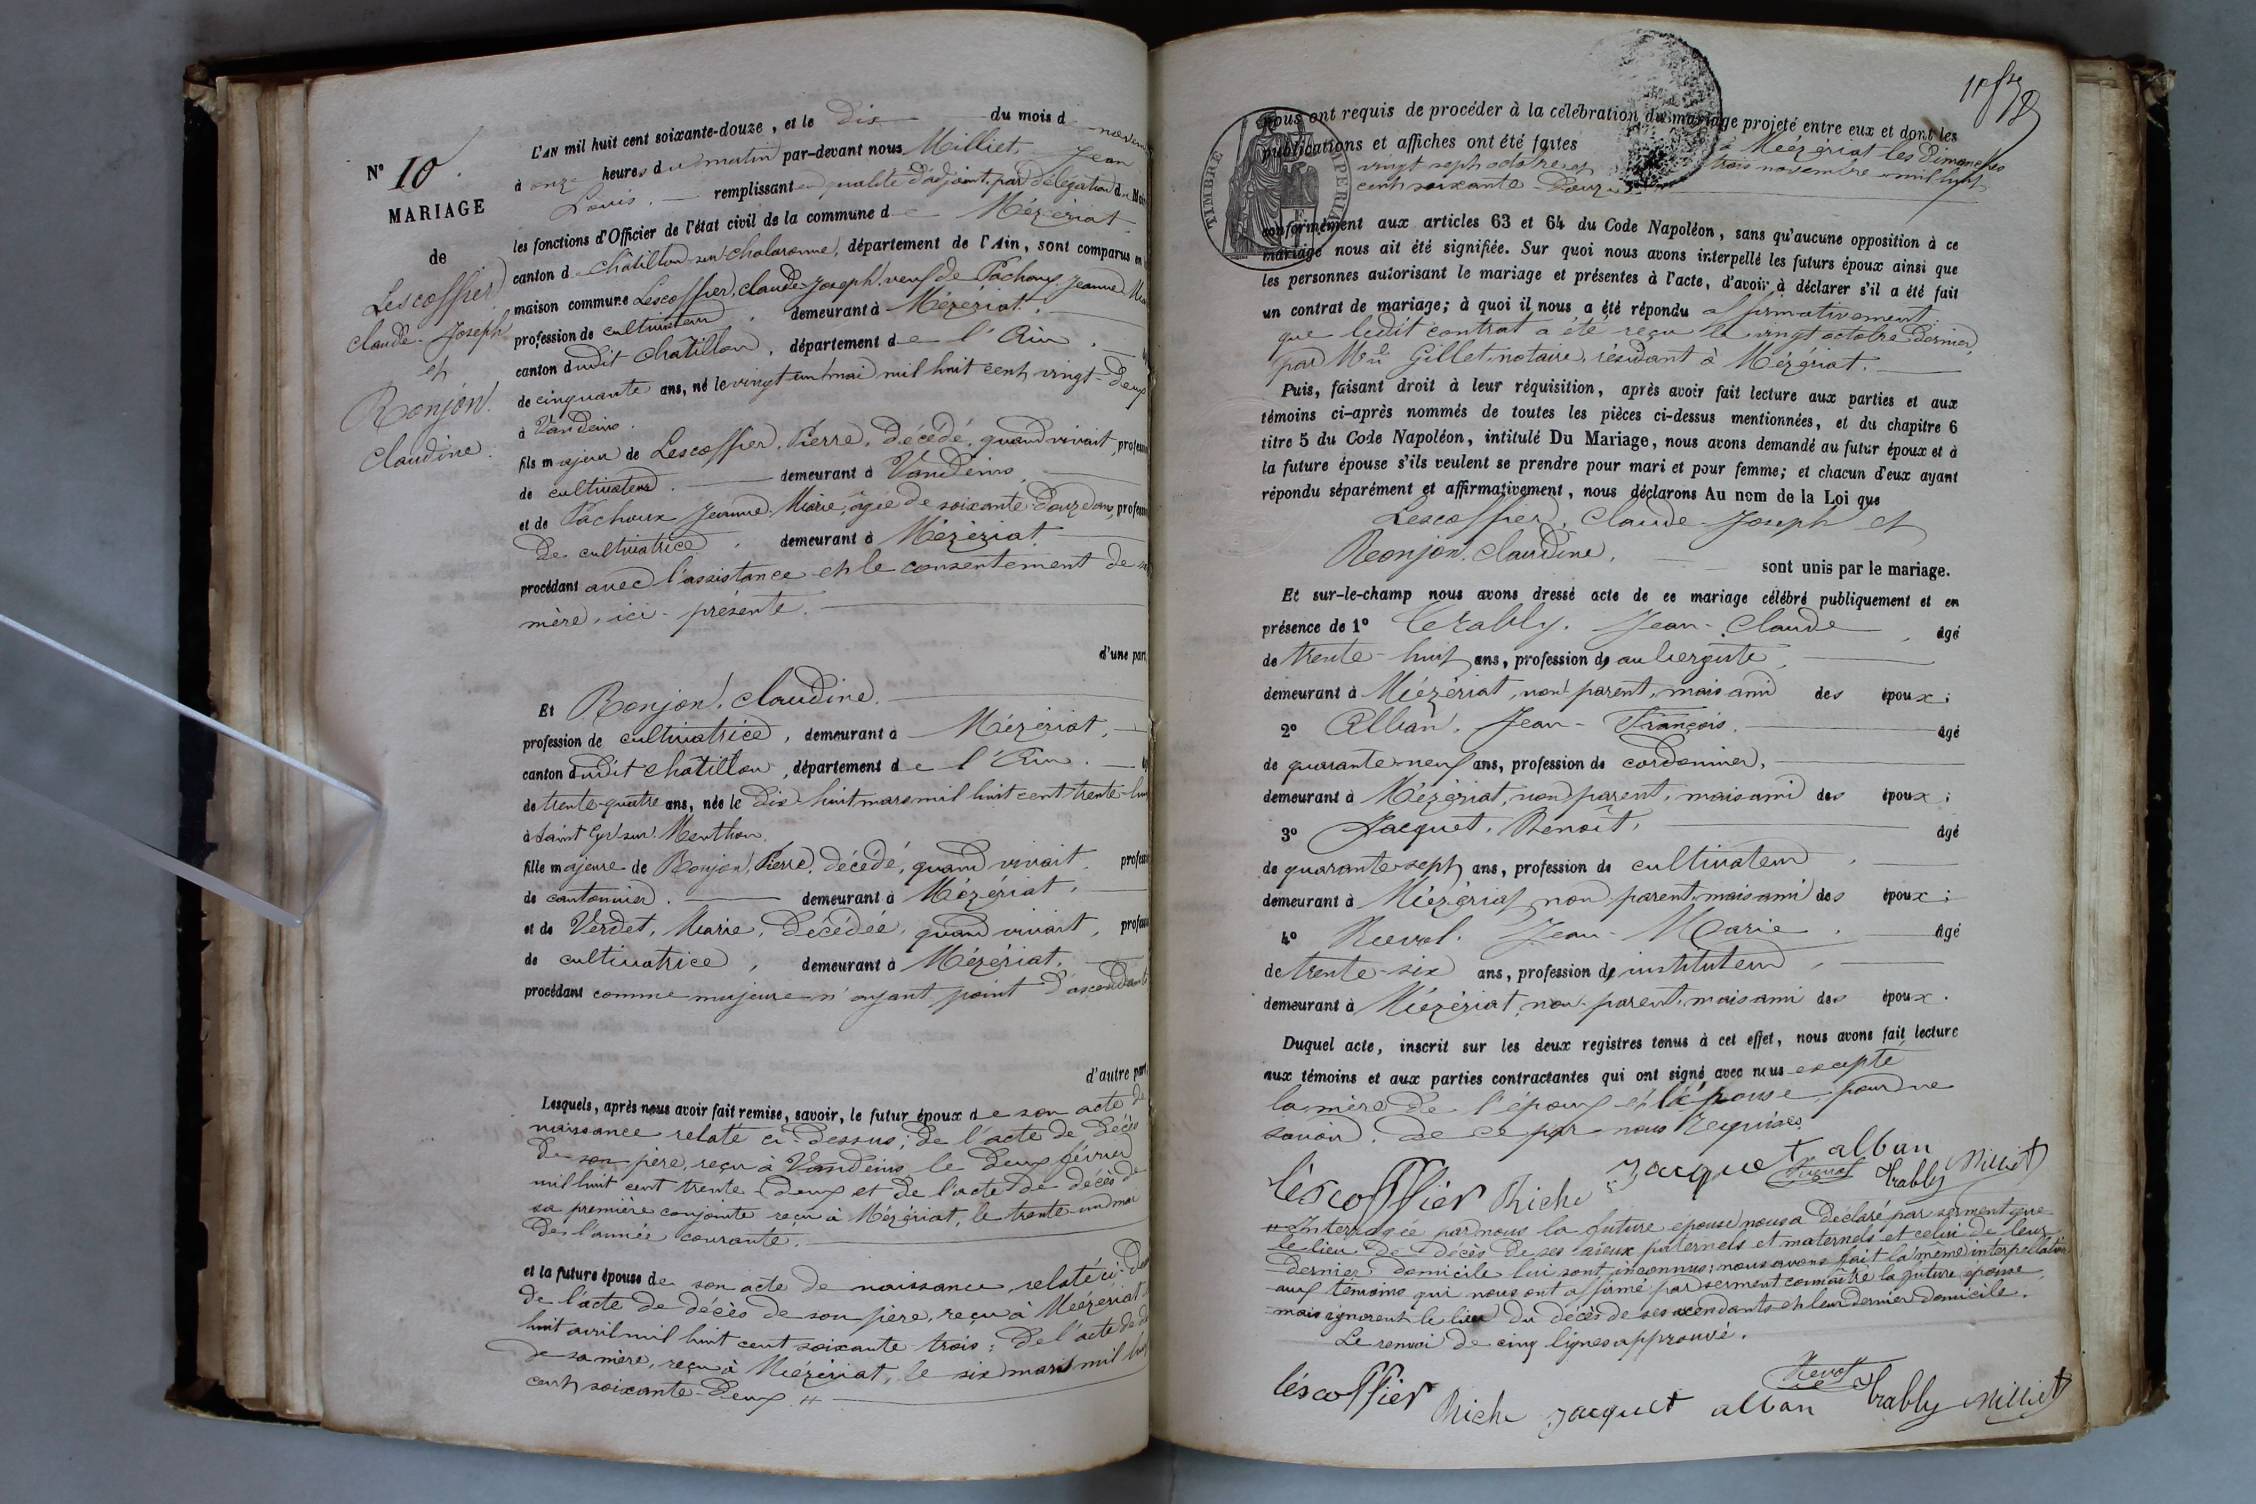 N° 10
MARIAGE
de
Lescoffier
Claude-Joseph
et
Ronjon
Claudine.
L'AN mil huit cent soixante-douze, et le dix du mois d
à onze heures du matin par-devant nous Milliet Jean
Louis. remplissant en qualité d'adjoint par délégation du
les fonctions d'Officier de l'état civil de la commune de Mézériat
canton de Châtillon-sur-Chalaronne, département de l'Ain, sont comparus en
maison commune Lescoffier, Claude-Joseph, veuf de Pachoux Jeanne
profession de cultivateur, demeurant à Mézériat,
canton dudit Châtillon, département de l'Ain,
de cinquante ans, né le vingt-un mai mil huit cent vingt-deux
à Vandeins.
fils majeur de Lescoffier, Pierre, décédé, quand vivait,
de cultivateur. demeurant à Vandeins
et de Pachoux Jeanne Marie, âgée de soixante-douze ans,
de cultivatrice, demeurant à Mézériat
procédant avec l'assistance et le consentement de
mère, ici-présente.
d'une part,
Et Ronjon, Claudine.
profession de cultivatrice, demeurant à Mézériat,
canton dudit Châtillon, département de l'Ain.
de trente-quatre ans, née le dix-huit mars mil huit cent trente-huit
à Saint Cyr-sur-Menthon.
fille majeure de Ronjon, Pierre, décédé, quand vivait,
de cantonnier. demeurant à Mézériat,
et de Verdet, Marie, décédée, quand vivait,
de cultivatrice, demeurant à Mézériat.
procédant comme majeure n'ayant point d'ascendants
d'autre part.
Lesquels, après nous avoir fait remise, savoir, le futur époux de son acte de
naissance relaté ci-dessus; de l'acte de décès
de son père, reçu à Vandeins le deux février
mil huit cent trente-deux et de l'acte de décès de
sa première conjointe reçu à Mézériat, le trente-un mai
de l'année courante.
et la future épouse de son acte de naissance relaté ci-
de l'acte de décès de son père, reçu à Mézériat
huit avril mil huit cent soixante trois; de l'acte de
de sa mère, reçu à Mézériat, le six mars mil huit
cent soixante-deux. #
nous ont requis de procéder à la célébration du mariage projeté entre eux et dont les
publications et affiches ont été faites à Mézériat les dimanches
vingt sept octobre et trois novembre mil huit
cent soixante-douze
conformément aux articles 63 et 64 du Code Napoléon, sans qu'aucune opposition à ce
mariage nous ait été signifiée. Sur quoi nous avons interpellé les futurs époux ainsi que
les personnes autorisant le mariage et présentes à l'acte, d'avoir à déclarer s'il a été fait
un contrat de mariage; à quoi il nous a été répondu affirmativement
que ledit contrat a été reçu le vingt octobre dernier,
par Gillet notaire, résidant à Mézériat.
Puis, faisant droit à leur réquisition, après avoir fait lecture aux parties et aux
témoins ci-après nommés de toutes les pièces ci-dessus mentionnées, et du chapitre 6
titre 5 du Code Napoléon, intitulé Du Mariage, nous avons demandé au futur époux et à
la future épouse s'ils veulent se prendre pour mari et pour femme; et chacun d'eux ayant
répondu séparément et affirmativement, nous déclarons Au nom de la Loi que
Lescoffier, Claude-Joseph et
Ronjon, Claudine, sont unis par le mariage.
Et sur-le-champ nous avons dressé acte de ce mariage célébré publiquement et en
présence de 1° Trably, Jean-Claude, âgé
de trente-huit ans, profession de aubergiste,
demeurant à Mézériat, non parent, mais ami des époux;
2° Alban, Jean-François. âgé
de quarante-neuf ans, profession de cordonnier,
demeurant à Mézériat, non parent, mais ami des époux;
3° Jacquet, Benoît, âgé
de quarante-sept ans, profession de cultivateur,
demeurant à Mézériat non parent, mais ami des époux;
4° Jean-Marie, âgé
de trente-six ans, profession de instituteur,
demeurant à Mézériat, non parent, mais ami des époux.
Duquel acte, inscrit sur les deux registres tenus à cet effet, nous avons fait lecture
aux témoins et aux parties contractantes qui ont signé avec nous excepté
la mère de l'époux et l'épouse pour ne
savoir, de ce par nous requises.
Lescoffier Riche Jacquet alban Trably Milliet
# Interrogée par nous la future épouse nous a déclaré par serment que
le lieu de décès de ses aïeux paternels et maternels et celui de leur
dernier domicile lui sont inconnus; nous avons fait la même interpellation
aux témoins qui nous ont affirmé par serment connaître la future épouse,
mais ignorent le lieu du décès de ses ascendants et leur dernier domicile.
Le renvoi de cinq lignes approuvé.
Lescoffier Riche Jacquet alban Trably Milliet
TIMBRE IMPERIAL